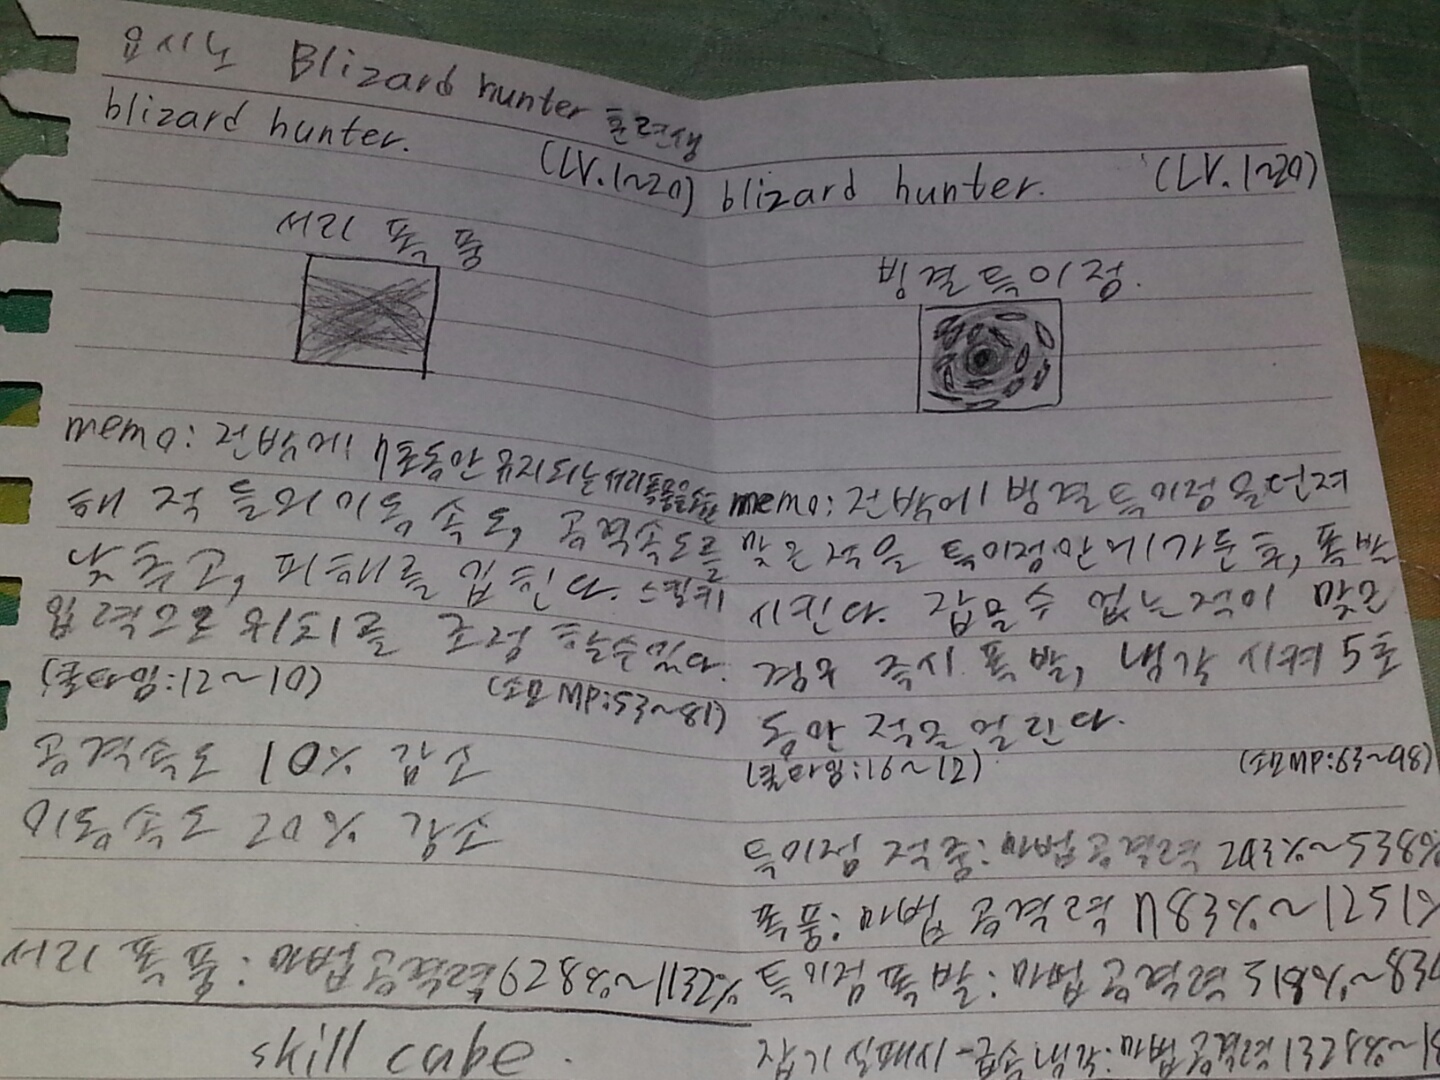 요시노 Blizard hunter 훈련생
blizard hunter.
(LV.1~20)
서리 폭풍
memo: 전방에 7초동안 유지되는 서리폭풍을 소환
해 적들의 이동 속도, 공격속도를
낮추고, 피해를 입힌다. 스킬키
입력으로 위치를 조정 할수있다.
(쿨타임:12~10) (소모MP:53~81)
공격속도 10% 감소
이동속도 20% 감소
서리 폭풍: 마법공격력 928%~1132%
skill cube.
blizard hunter. (LV.1~20)
빙결특이점.
memo: 전방에 빙결특이점을 던져
맞은 적을 특이점안에 가둔 후, 폭발
시킨다. 잡을수 없는적이 맞은
경우 즉시 폭발, 냉각 시켜 5초
동안 적을 얼린다.
(쿨타임:16~12) (소모MP:63~98)
특이점 적중: 마법공격력 243%~538%
폭풍: 마법 공격력 783%~1251%
특이점 폭발: 마법공격력 518%~
잡기 실패시-급속냉각: 마법공격력